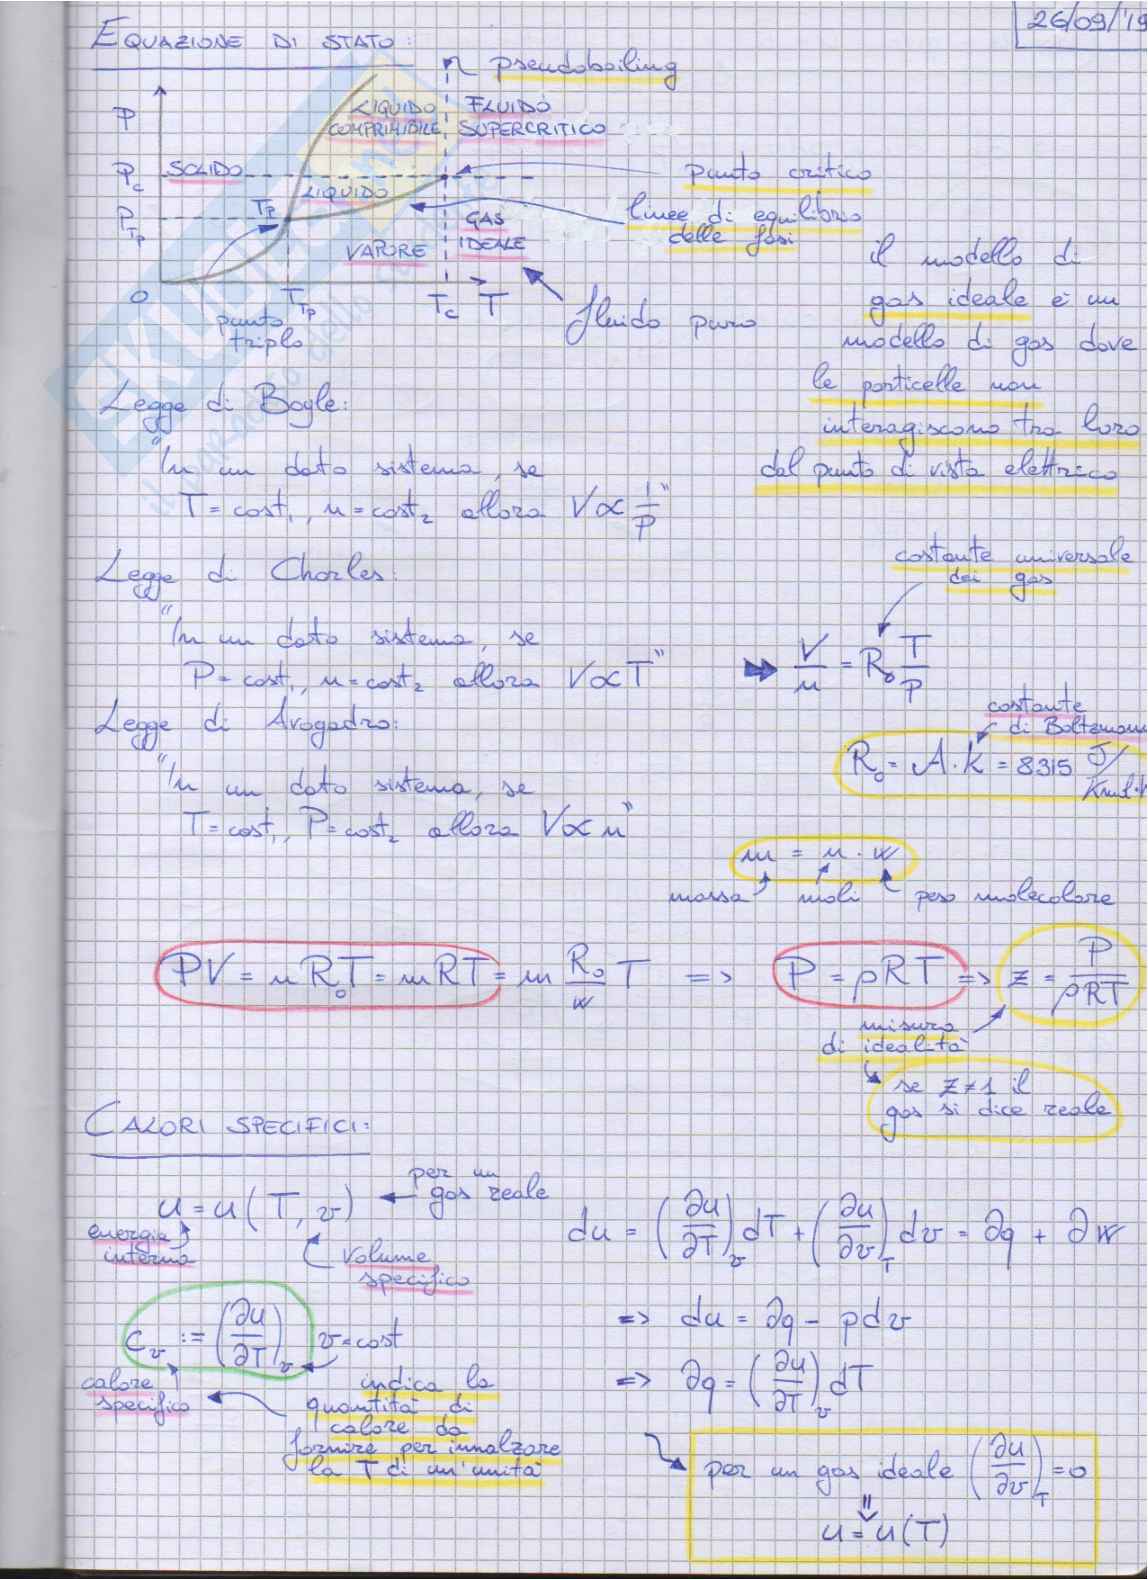 26/09/'19
EQUAZIONE DI STATO:
pseudoboiling
P
LIQUIDO COMPRIMIBILE
FLUIDO SUPERCRITICO
P_c
SOLIDO
punto critico
LIQUIDO
P_Tp
Tp
GAS IDEALE
linee di equilibrio
delle fasi
VAPORE
O
T_Tp
T_c
T
punto
triplo
fluido puro
il modello di
gas ideale è un
modello di gas dove
le particelle non
interagiscono tra loro
dal punto di vista elettrico
Legge di Boyle:
"In un dato sistema, se
T = cost₁, n = cost₂ allora V ∝ 1/P"
Legge di Charles:
"In un dato sistema, se
P = cost₁, n = cost₂ allora V ∝ T"
costante universale
dei gas
V/n = R₀ T/P
Legge di Avogadro:
"In un dato sistema, se
T = cost₁, P = cost₂ allora V ∝ n"
costante
di Boltzmann
R₀ = A · k = 8315 J/Kmol·K
m = n · w
massa moli peso molecolare
PV = n R₀ T = m R T = m R₀/w T => P = ρRT => z = P/ρRT
misura
di idealità
se z ≠ 1 il
gas si dice reale
CALORI SPECIFICI:
u = u(T, v)
per un
gas reale
energia
interna
volume
specifico
du = (∂u/∂T)_v dT + (∂u/∂v)_T dv = ∂q + ∂w
=> du = ∂q - pdv
c_v := (∂u/∂T)_v v = cost
=> ∂q = (∂u/∂T)_v dT
calore
specifico
indica la
quantità di
calore da
fornire per innalzare
la T di un'unità
per un gas ideale (∂u/∂v)_T = 0
⇓
u = u(T)